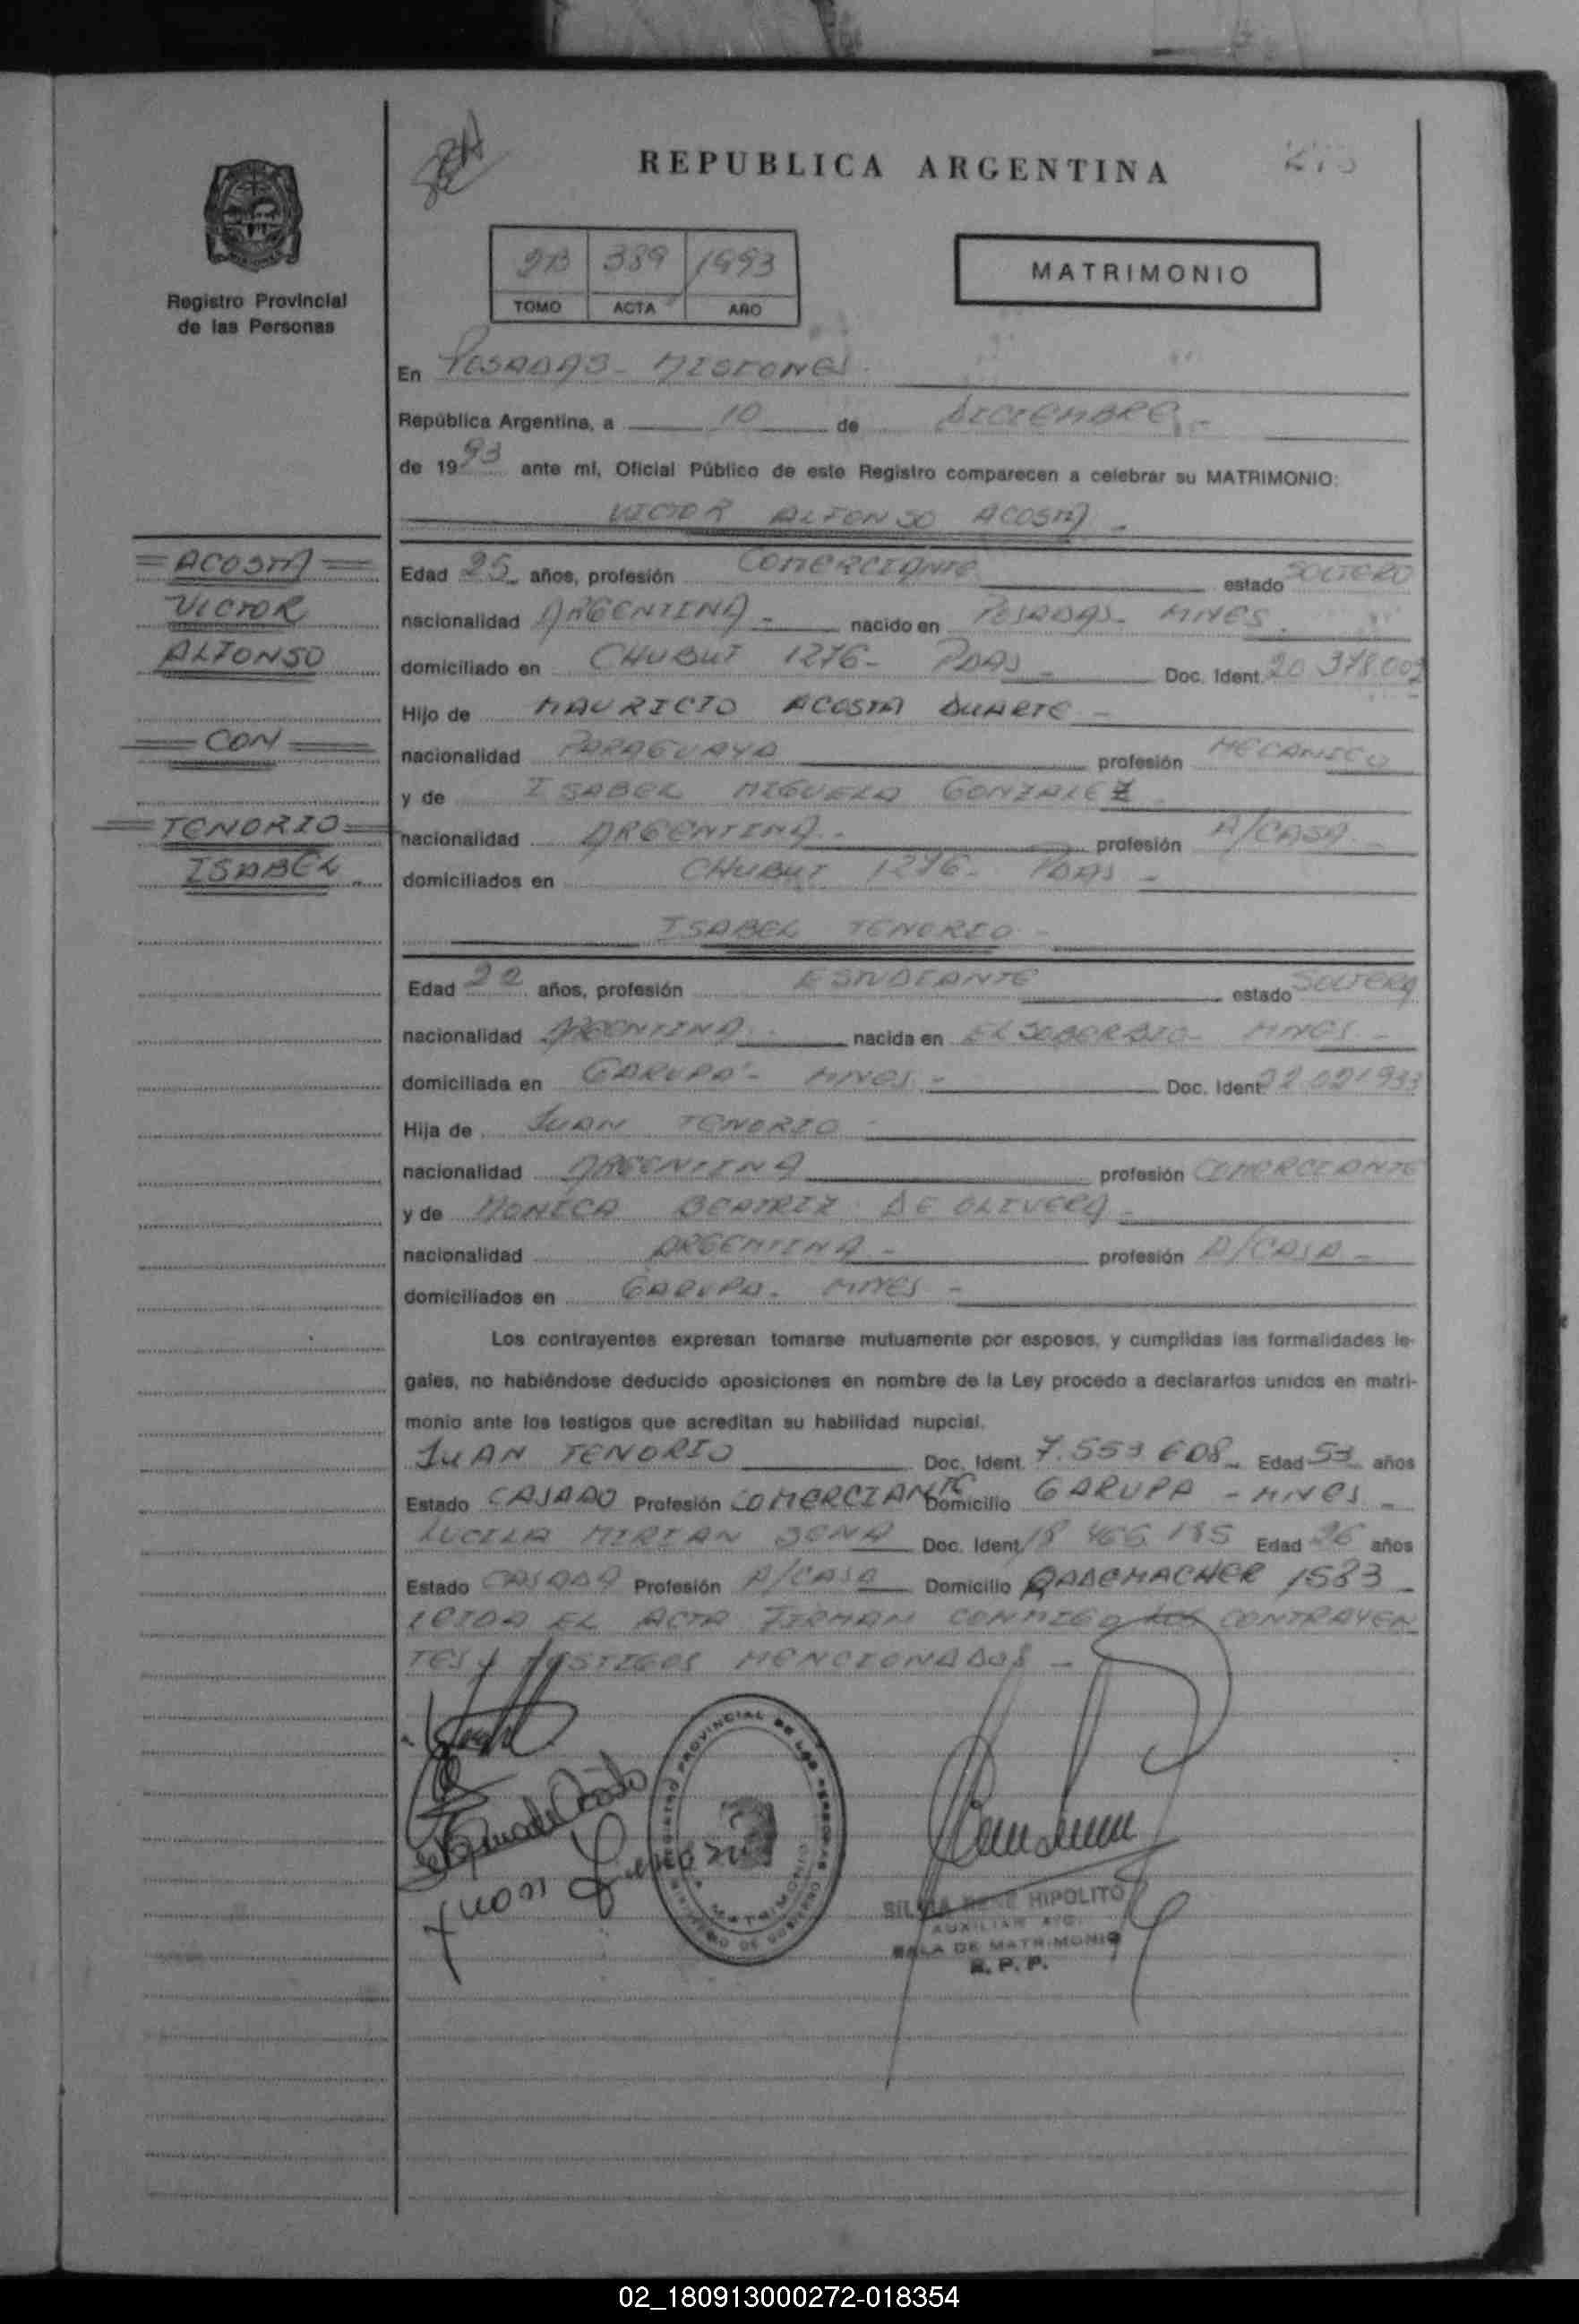 REPUBLICA ARGENTINA
Registro Provincial
de las Personas
2B 389 1993
TOMO ACTA AÑO
MATRIMONIO
En POSADAS - MISIONES
República Argentina, a 10 de DICIEMBRE.-
de 1993 ante mí, Oficial Público de este Registro comparecen a celebrar su MATRIMONIO:
VICTOR ALFONSO ACOSTA -
= ACOSTA =
VICTOR
ALFONSO
= CON =
= TENORIO =
ISABEL
Edad 25 años, profesión COMERCIANTE estado SOLTERO
nacionalidad ARGENTINA - nacido en POSADAS - MNES.
domiciliado en CHUBUT 1276 - PDAS - Doc. Ident. 20 378 009
Hijo de MAURICIO ACOSTA DUARTE -
nacionalidad PARAGUAYA profesión MECANICO
y de ISABEL MIGUELA GONZALEZ
nacionalidad ARGENTINA - profesión A/CASA -
domiciliados en CHUBUT 1276 - PDAS -
ISABEL TENORIO -
Edad 22 años, profesión ESTUDIANTE estado SOLTERA
nacionalidad ARGENTINA - nacida en EL SOBERBIO - MNES -
domiciliada en GARUPA - MNES - Doc. Ident. 22 021 933
Hija de JUAN TENORIO -
nacionalidad ARGENTINA profesión COMERCIANTE
y de MONICA BEATRIZ DE OLIVERA -
nacionalidad ARGENTINA - profesión A/CASA -
domiciliados en GARUPA - MNES -
Los contrayentes expresan tomarse mutuamente por esposos, y cumplidas las formalidades le-
gales, no habiéndose deducido oposiciones en nombre de la Ley procedo a declararlos unidos en matri-
monio ante los testigos que acreditan su habilidad nupcial.
JUAN TENORIO Doc. Ident. 7.553 608 - Edad 53 años
Estado CASADO Profesión COMERCIANTE Domicilio GARUPA - MNES -
LUCILA MIRIAN SENA Doc. Ident. 18 466 185 Edad 26 años
Estado CASADA Profesión A/CASA Domicilio RADEMACHER 1583 -
LEIDA EL ACTA FIRMAN CONMIGO LOS CONTRAYEN
TES Y TESTIGOS MENCIONADOS -
REGISTRO PROVINCIAL DE LAS PERSONAS
MATRIMONIO
MINISTERIO DE GOBIERNO
Juan Tenorio
SILVIA RENE HIPOLITO
AUXILIAR
SALA DE MATRIMONIO
R. P. P.
02_180913000272-018354